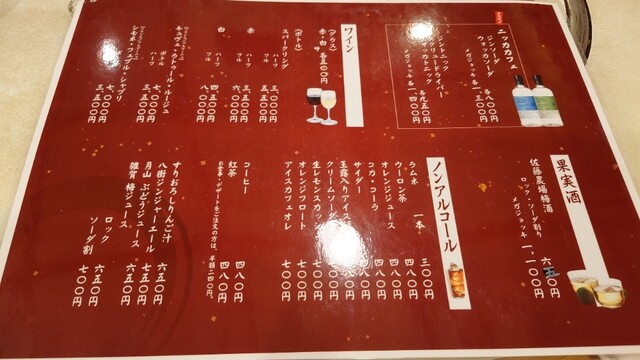 ニッカカフェ
ジンソーダ
ウォッカソーダ 各八〇〇
メガジョッキ 各一三〇〇
ジントニック
スクリュードライバー
ウォッカトニック 各九五〇
メガジョッキ 各一四〇〇
ワイン
(グラス)
赤・白
(ボトル)
スパークリング
ハーフ 三、五〇〇円
赤
フル 六、五〇〇円
ハーフ 三、五〇〇円
白
フル 八、〇〇〇円
ハーフ 四、五〇〇円
キュヴェ・カトゥール・ルージュ
ボトル 七、〇〇〇円
ハーフ 三、五〇〇円
シモネ・フェブル・シャブリ
七、〇〇〇円
三、五〇〇円
果実酒
佐藤農場梅酒
ロック・ソーダ割り 六五〇円
メガジョッキ 一、一〇〇円
ノンアルコール
ラムネ 一本 三〇〇円
ウーロン茶 四八〇円
オレンジジュース 四八〇円
コカ・コーラ 四八〇円
サイダー 四八〇円
玉露入りアイス
クリームソーダ
生レモンスカッシュ 七〇〇円
オレンジフロート 七〇〇円
アイスカフェオレ 七〇〇円
コーヒー 四八〇円
紅茶 四八〇円
お食事・デザートをご注文の方は、半額二四〇円。
すりおろしりんご汁 六五〇円
八街ジンジャーエール 六五〇円
月山 ぶどうジュース 七五〇円
雑賀 梅ジュース
ロック 六五〇円
ソーダ割 七〇〇円